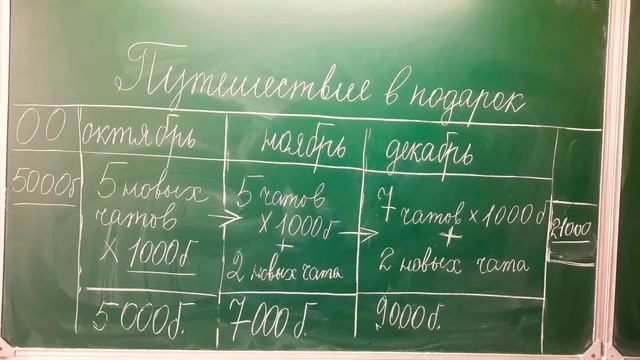 Путешествие в подарок
ОО октябрь ноябрь декабрь
5000б
5 новых
чатов
х 1000б.
5 чатов
х 1000б
+
2 новых чата
7 чатов х 1000б
+
2 новых чата
21000
5000б. 7000б. 9000б.